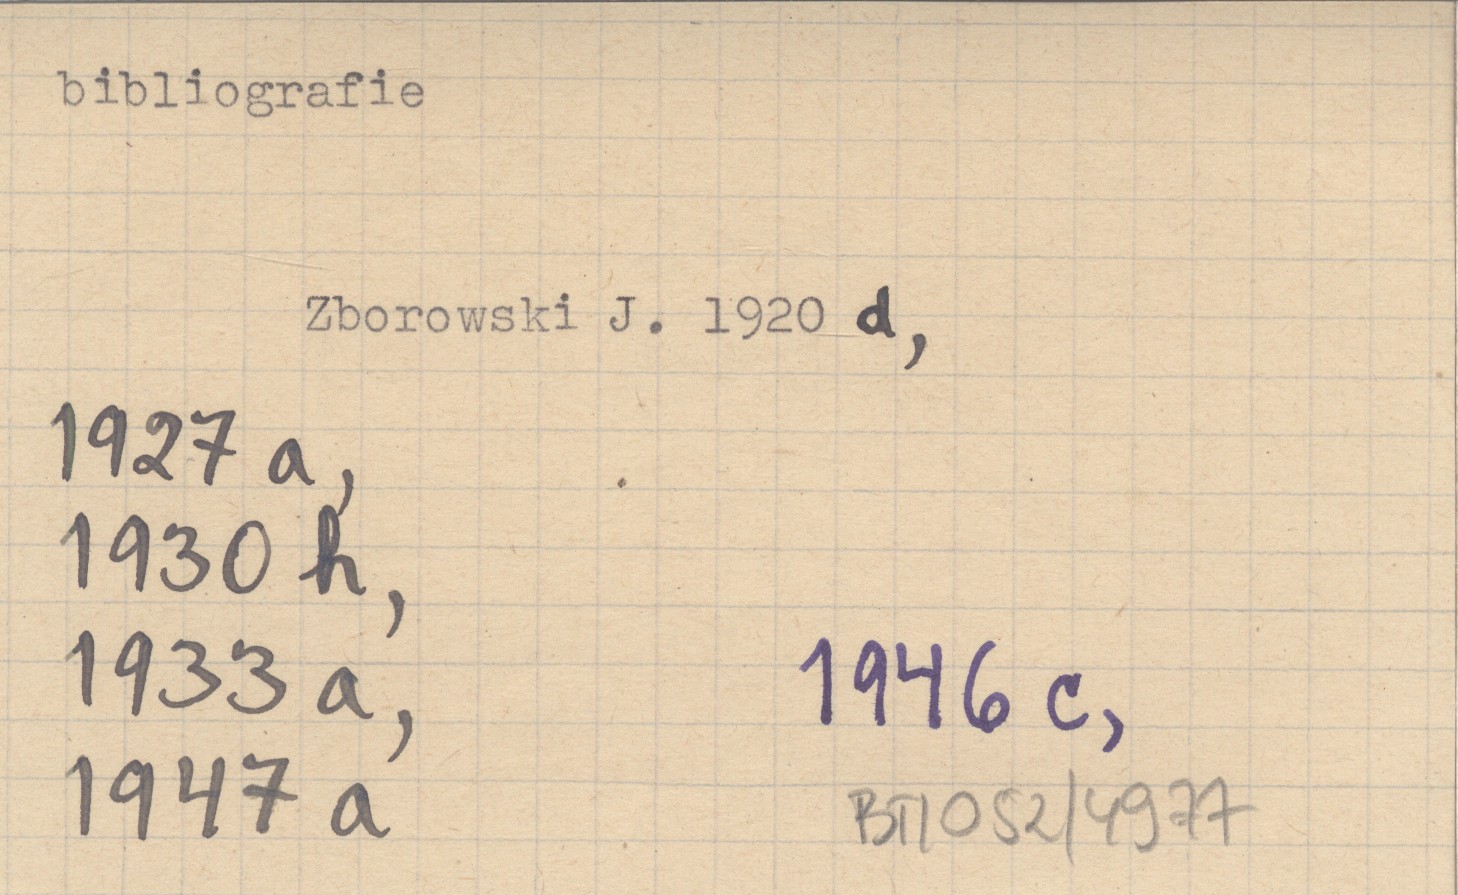 bibliografie
Zborowski J. 1920 d,
1927 a,
1930 h,
1933 a,
1946 c,
1947 a
BTI052/4977